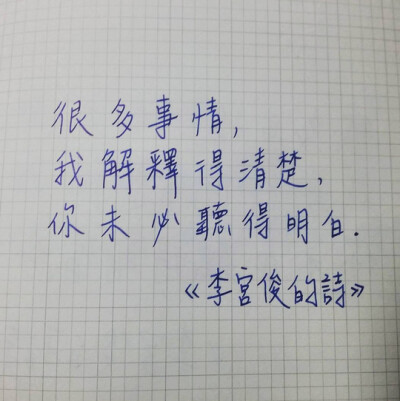 很多事情,
我解釋得清楚,
你未必聽得明白.
《李宮俊的詩》